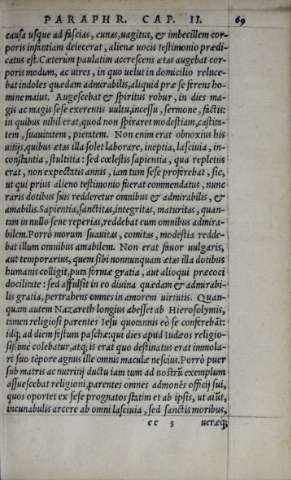 PARAPHR. CAP. II. 69
causa usque ad fascias, cunas, uagitus, & imbecillem cor-
poris infantiam deiecerat, alienæ uocis testimonio prædi-
catus est. Cæterum paulatim accrescens ætas augebat cor-
poris modum, ac uires, in quo uelut in domicilio reluce-
bat indoles quædam admirabilis, aliquid præ se ferens ho-
mine maius. Augescebat & spiritus robur, in dies ma-
gis ac magis sese exerentis uultu, incessu, sermone, factis:
in quibus nihil erat, quod non spiraret modestiam, castita-
tem, suauitatem, pietatem. Non enim erat obnoxius his
uitijs, quibus ætas illa solet laborare, ineptia, lasciuia, in-
constantia, stultitia: sed cœlestis sapientia, qua repletus
erat, non expectatis annis, iam tum sese proferebat, sic,
ut qui prius alieno testimonio fuerat commendatus, nunc
raris dotibus suis redderetur omnibus & admirabilis, &
amabilis. Sapientia, sanctitas, integritas, maturitas, quan-
tam in nullo sene reperias, reddebat eum omnibus admira-
bilem. Porrò morum suauitas, comitas, modestia redde-
bat illum omnibus amabilem. Non erat fauor uulgaris,
aut temporarius, quem sibi nonnunquam ætas illa dotibus
humanis colligit, puta formæ gratia, aut alioqui præcoci
docilitate: sed affulsit in eo diuina quædam & admirabi-
lis gratia, pertrahens omnes in amorem uirtutis. Quan-
quam autem Nazareth longius abesset ab Hierosolymis,
tamen religiosi parentes Iesu quotannis eò se conferebãt:
idq; ad diem festum paschæ: qui dies apud Iudæos religio-
sissimè colebatur, atq; is erat quo destinatus erat immola-
ri suo tẽpore agnus ille omnis maculæ nescius. Porrò puer
sub matris ac nutricij ductu iam tum ad nostrũ exemplum
assuescebat religioni, parentes omnes admonẽs officij sui,
quos oportet ex sese prognatos statim et ab ipsis, ut aiũt,
incunabulis arcere ab omni lasciuia, sed sanctis moribus,
cc 5 ueræq;